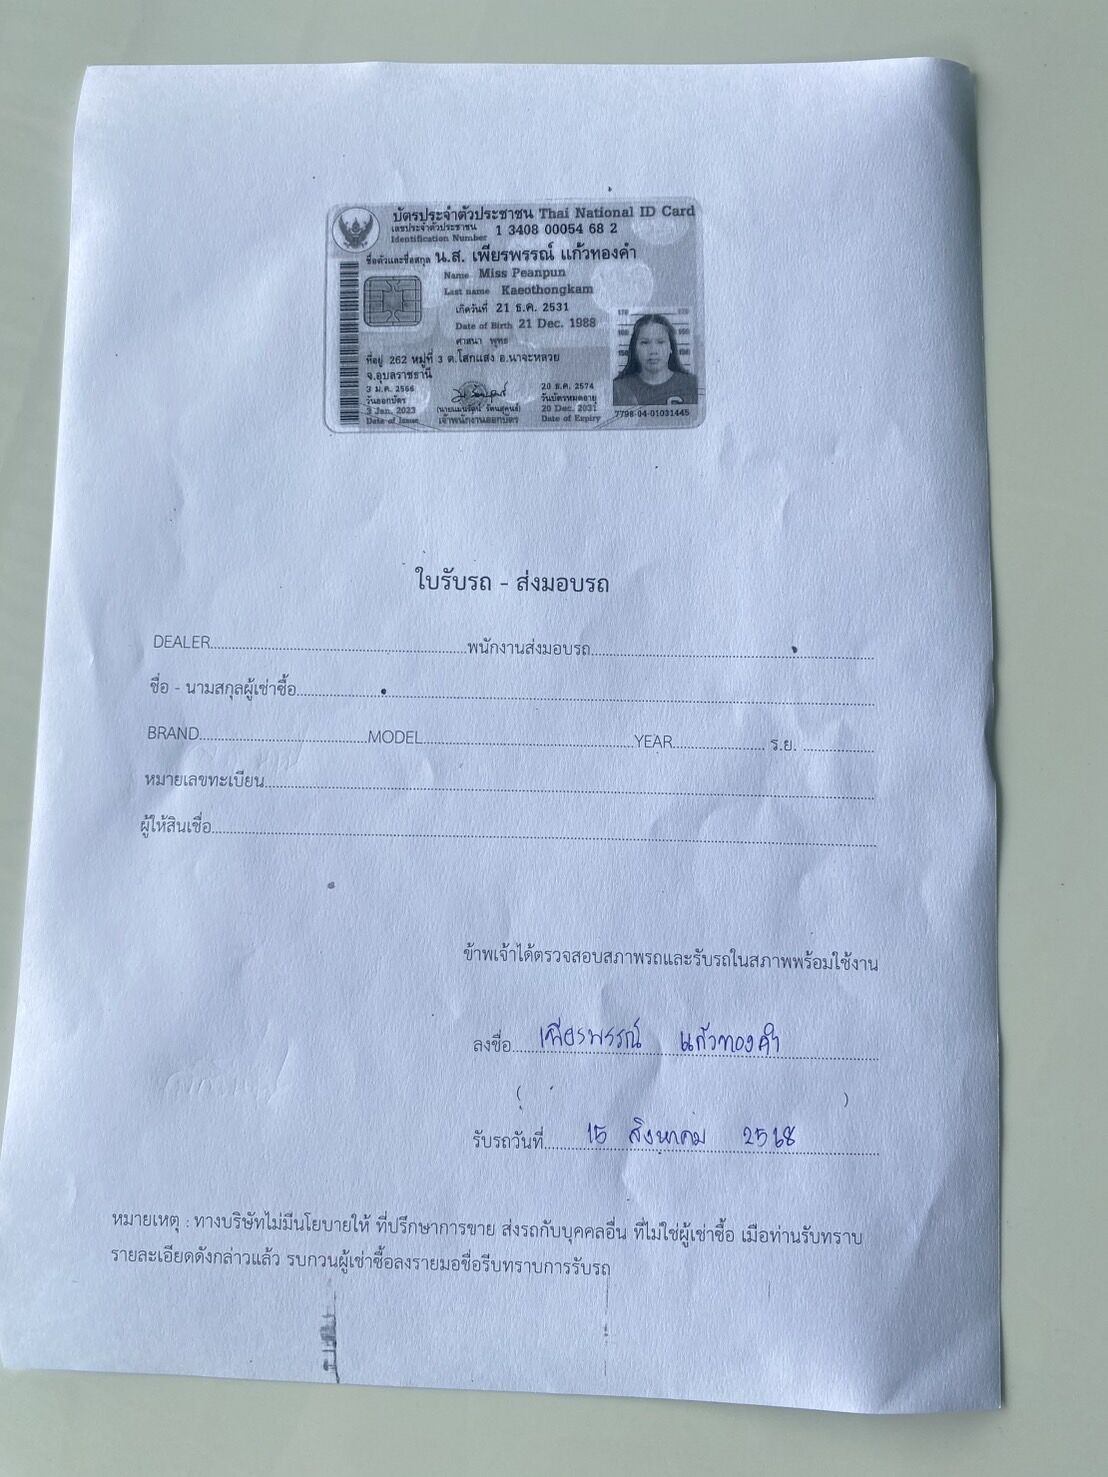 บัตรประจำตัวประชาชน Thai National ID Card
เลขประจำตัวประชาชน 1 3408 00054 68 2
Identification Number
ชื่อตัวและชื่อสกุล น.ส. เพียรพรรณ์ แก้วทองคำ
Name Miss Peanpun
Last name Kaeothongkam
เกิดวันที่ 21 ธ.ค. 2531
Date of Birth 21 Dec. 1988
ศาสนา พุทธ
ที่อยู่ 262 หมู่ที่ 3 ต.โสกแสง อ.นาจะหลวย
จ.อุบลราชธานี
3 ม.ค. 2566
วันออกบัตร
3 Jan. 2023
Date of Issue
เจ้าพนักงานออกบัตร
20 ธ.ค. 2574
วันบัตรหมดอายุ
20 Dec. 2031
Date of Expiry
7798-04-01031445
ใบรับรถ - ส่งมอบรถ
DEALER พนักงานส่งมอบรถ
ชื่อ - นามสกุลผู้เช่าซื้อ
BRAND MODEL YEAR ร.ย.
หมายเลขทะเบียน
ผู้ให้สินเชื่อ
ข้าพเจ้าได้ตรวจสอบสภาพรถและรับรถในสภาพพร้อมใช้งาน
ลงชื่อ เพียรพรรณ์ แก้วทองคำ
( )
รับรถวันที่ 15 สิงหาคม 2568
หมายเหตุ : ทางบริษัทไม่มีนโยบายให้ ที่ปรึกษาการขาย ส่งรถกับบุคคลอื่น ที่ไม่ใช่ผู้เช่าซื้อ เมื่อท่านรับทราบ
รายละเอียดดังกล่าวแล้ว รบกวนผู้เช่าซื้อลงรายมอชื่อรับทราบการรับรถ